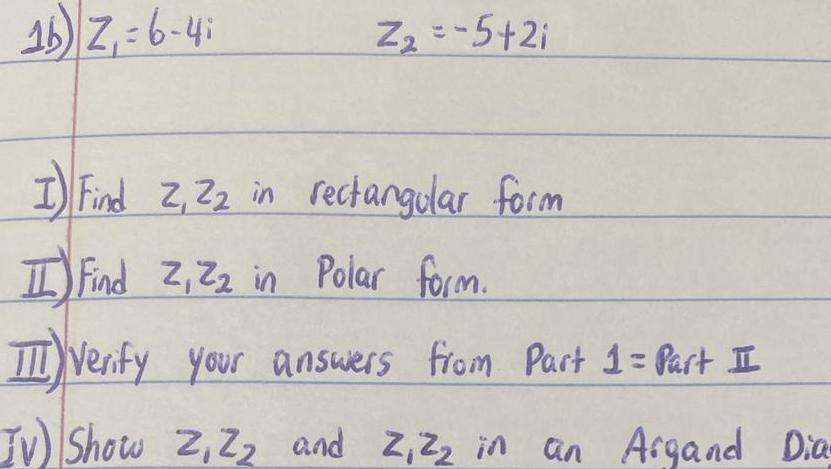 1b) Z₁ = 6-4i Z₂ = -5+2i
I) Find Z₁Z₂ in rectangular form
II) Find Z₁Z₂ in Polar form.
III) Verify your answers from Part 1 = Part II
IV) Show Z₁Z₂ and Z₁Z₂ in an Argand Dia